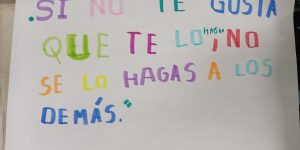 .SI NO TE GUSTA
QUE TE LO "HAGAN", NO
SE LO HAGAS A LOS
DEMÁS."